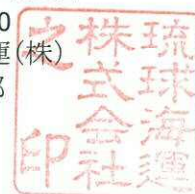 0
運(株)
部
琉球海運
株式会社
之印